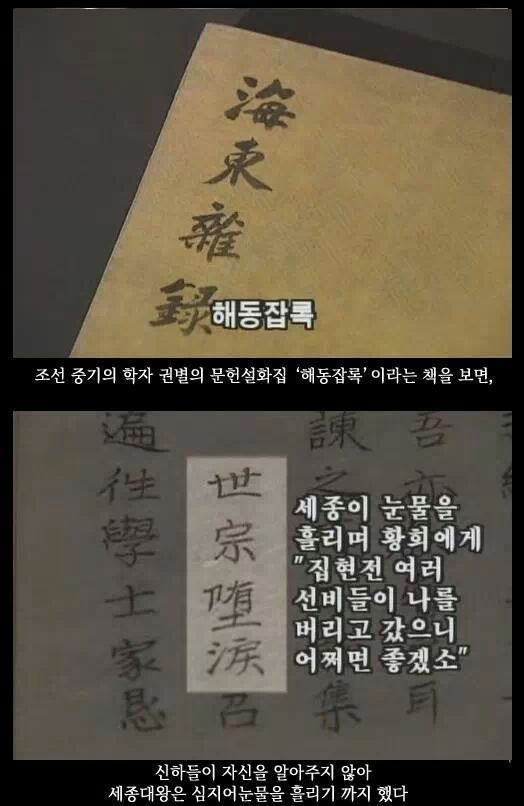 海東雜録
해동잡록
조선 중기의 학자 권별의 문헌설화집 ‘해동잡록’ 이라는 책을 보면,
吾亦
耳
諫之
集
世宗墮淚召
遍徃學士家懇
세종이 눈물을
흘리며 황희에게
"집현전 여러
선비들이 나를
버리고 갔으니
어쩌면 좋겠소"
신하들이 자신을 알아주지 않아
세종대왕은 심지어눈물을 흘리기 까지 했다